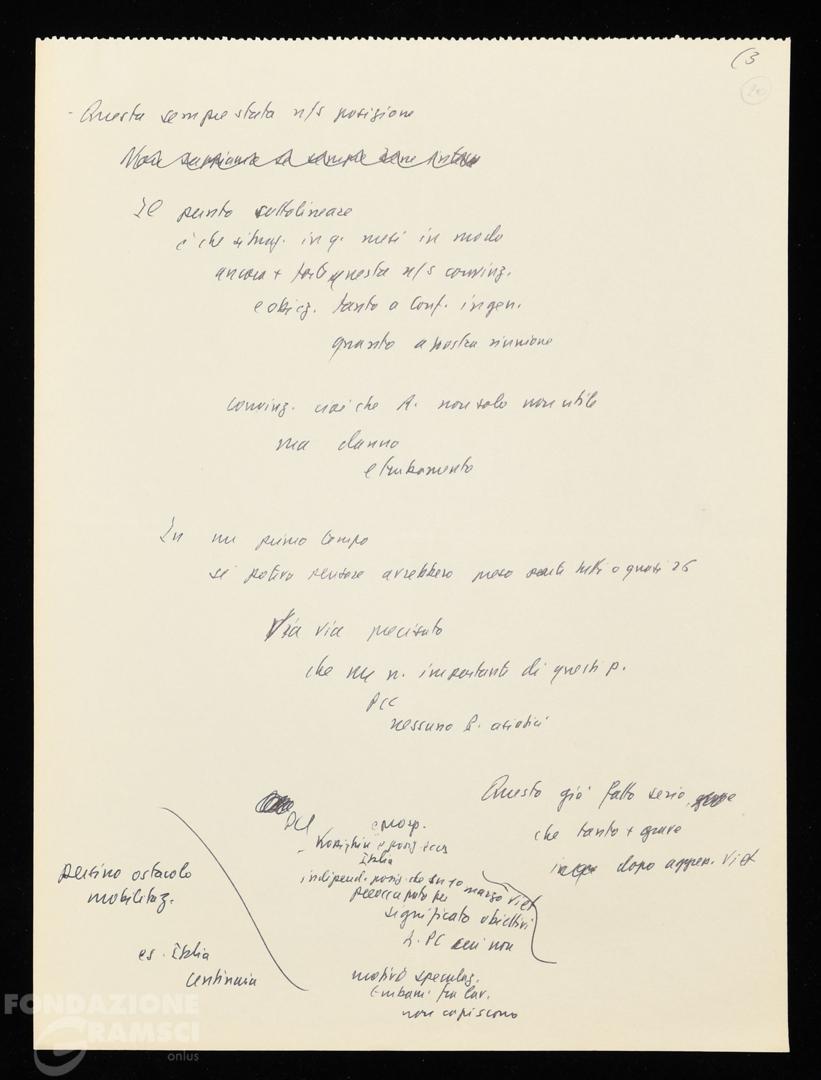 (3
20
- Questa sempre stata n/s posizione
Il punto sottolineare
è che situaz. in q. mesi in modo
ancora + forte questa n/s convinz.
e obiez. tanto a Conf. in gen.
quanto a nostra riunione
convinz. cioè che R. non solo non utile
ma danno
e turbamento
In un primo tempo
si poteva pensare avrebbero preso parte tutti o quasi 26
Via via precisato
che un n. importanti di questi p.
PCC
nessuno P. asiatici
Questo già fatto serio
che tanto + grave
dopo aggres. Viet
e
- Kossighin e
Italia
indipend. posiz. che su 10 marzo Viet
preoccupato per
significato obiettivi
PC non
motivo speculaz.
turbam. tra lav.
non capiscono
persino ostacolo
mobilitaz.
es. Italia
centinaia
FONDAZIONE
GRAMSCI
onlus